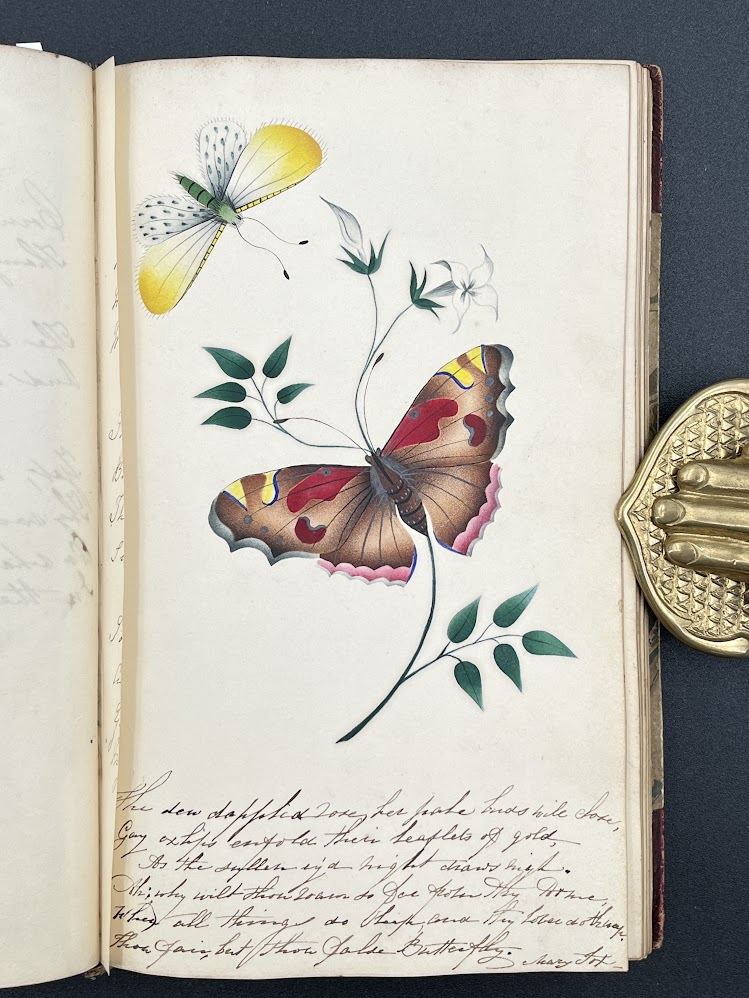 The dew dappled rose, her pale buds will close,
Gay oxlips enfold their leaflets of gold,
As the sullen ey'd night draws nigh.
Ah, why wilt thou roam so far from thy home,
When all things do sleep, and thy love doth weep.
Thou fair, but thou false Butterfly.
Mary Fox